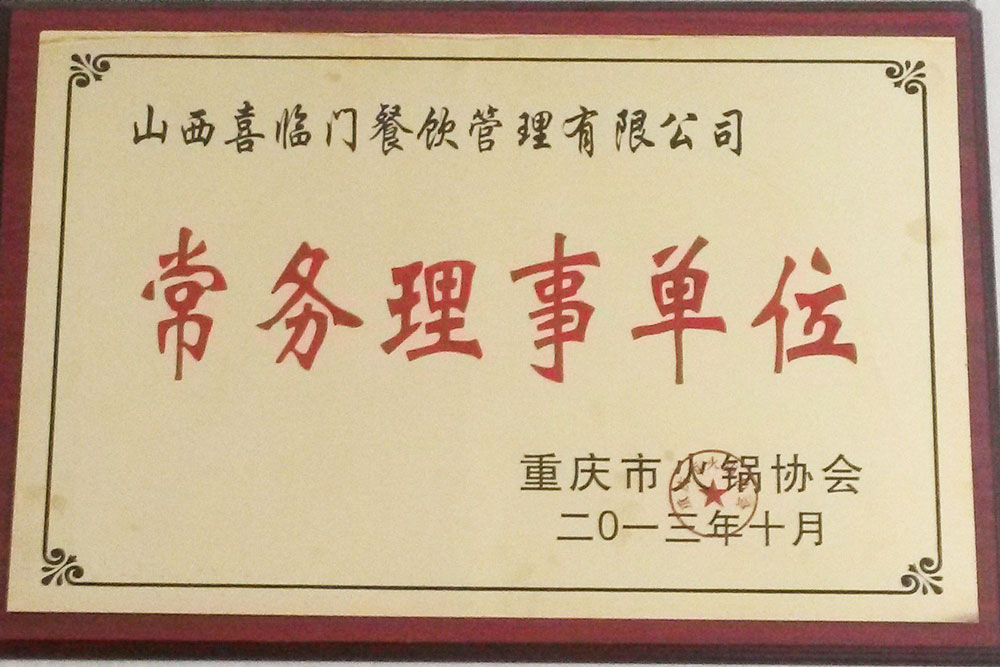 山西喜临门餐饮管理有限公司
常务理事单位
重庆市火锅协会
二0一三年十月